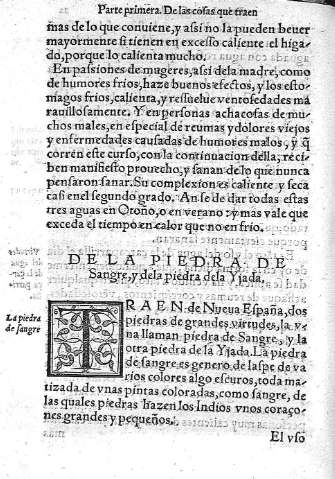 Parte primera. De las cosas que traen
mas de lo que conuiene, y assi no la pueden beuer
mayormente si tienen en excesso caliente el higa-
do, porque lo calienta mucho.
En passiones de mugeres, assi de la madre, como
de humores frios, haze buenos efectos, y los esto-
magos frios, calienta, y resuelue ventosedades ma
rauillosamente. Y en personas achacosas de mu-
chos males, en especial de reumas y dolores viejos
y enfermedades causadas de humores malos, y q̃
corrẽn este curso, con la continuacion della, reci-
ben manifiesto prouecho, y sanan de lo que nunca
pensaron sanar. Su complexion es caliente y seca
casi en el segundo grado. An se de dar todas estas
tres aguas en Otoño, o en verano: y mas vale que
exceda el tiempo en calor que no en frio.
DE LA PIEDRA DE
Sangre, y de la piedra de la Yjada.
La piedra
de sangre
TRAEN de Nueua España, dos
piedras de grandes virtudes, la v-
na llaman piedra de Sangre, y la
otra piedra de la Yjada. La piedra
de sangre es genero de Iaspe de va
rios colores algo escuros, toda ma-
tizada de vnas pintas coloradas, como sangre, de
las quales piedras hazen los Indios vnos coraço-
nes grandes y pequeños.
El vso